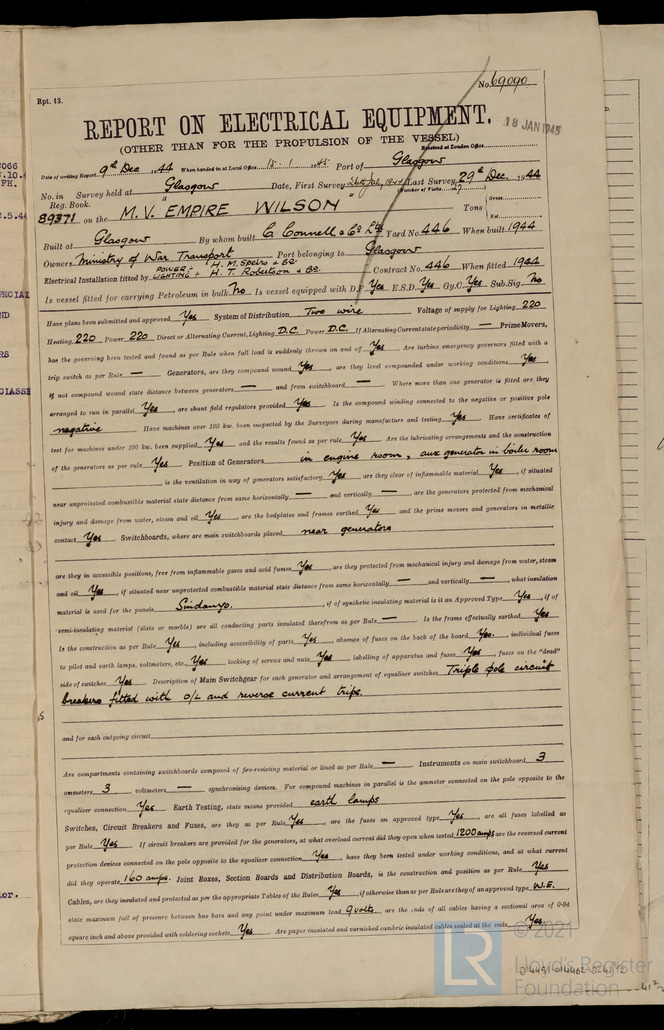 No. 69090
Rpt. 13.
REPORT ON ELECTRICAL EQUIPMENT.
18 JAN 1945
(OTHER THAN FOR THE PROPULSION OF THE VESSEL)
Received at London Office
Date of writing Report 9th Dec 1944 When handed in at Local Office 15.1.1945 Port of Glasgow
No. in Survey held at Glasgow Date, First Survey Last Survey 29th Dec. 1944
Reg. Book. (Number of Visits 27)
89371 on the M.V. "EMPIRE WILSON" Tons Gross Net
Built at Glasgow By whom built C. Connell & Co Ltd Yard No. 446 When built 1944
Owners Ministry of War Transport Port belonging to Glasgow
Electrical Installation fitted by POWER:- H. M. Speirs & Co. LIGHTING:- H. T. Robertson & Co. Contract No. 446 When fitted 1944
Is vessel fitted for carrying Petroleum in bulk No Is vessel equipped with D.F. Yes E.S.D. Yes Gy.C. Yes Sub.Sig. No
Have plans been submitted and approved Yes System of Distribution Two wire Voltage of supply for Lighting 220
Heating 220 Power 220 Direct or Alternating Current, Lighting D.C. Power D.C. If Alternating Current state periodicity — Prime Movers,
has the governing been tested and found as per Rule when full load is suddenly thrown on and off Yes Are turbine emergency governors fitted with a
trip switch as per Rule — Generators, are they compound wound Yes, are they level compounded under working conditions Yes,
if not compound wound state distance between generators — and from switchboard — Where more than one generator is fitted are they
arranged to run in parallel Yes, are shunt field regulators provided Yes Is the compound winding connected to the negative or positive pole
negative Have machines over 100 kw. been inspected by the Surveyors during manufacture and testing Yes Have certificates of
test for machines under 100 kw. been supplied Yes and the results found as per rule Yes Are the lubricating arrangements and the construction
of the generators as per rule Yes Position of Generators in engine room, aux generator in boiler room
, is the ventilation in way of generators satisfactory Yes are they clear of inflammable material Yes, if situated
near unprotected combustible material state distance from same horizontally — and vertically —, are the generators protected from mechanical
injury and damage from water, steam and oil Yes, are the bedplates and frames earthed Yes and the prime movers and generators in metallic
contact Yes Switchboards, where are main switchboards placed near generators
are they in accessible positions, free from inflammable gases and acid fumes Yes, are they protected from mechanical injury and damage from water, steam
and oil Yes, if situated near unprotected combustible material state distance from same horizontally — and vertically —, what insulation
material is used for the panels Sindanyo, if of synthetic insulating material is it an Approved Type Yes, if of
semi-insulating material (slate or marble) are all conducting parts insulated therefrom as per Rule — Is the frame effectually earthed Yes
Is the construction as per Rule Yes, including accessibility of parts Yes, absence of fuses on the back of the board Yes., individual fuses
to pilot and earth lamps, voltmeters, etc., Yes locking of screws and nuts Yes, labelling of apparatus and fuses Yes, fuses on the "dead"
side of switches Yes. Description of Main Switchgear for each generator and arrangement of equaliser switches Triple pole circuit
breakers fitted with o/L and reverse current trips.
and for each outgoing circuit
Are compartments containing switchboards composed of fire-resisting material or lined as per Rule — Instruments on main switchboard 3
ammeters 3 voltmeters — synchronising devices. For compound machines in parallel is the ammeter connected on the pole opposite to the
equaliser connection Yes Earth Testing, state means provided earth lamps
Switches, Circuit Breakers and Fuses, are they as per Rule Yes, are the fuses an approved type Yes, are all fuses labelled as
per Rule Yes If circuit breakers are provided for the generators, at what overload current did they open when tested 1200 amps are the reversed current
protection devices connected on the pole opposite to the equaliser connection Yes, have they been tested under working conditions, and at what current
did they operate 160 amps. Joint Boxes, Section Boards and Distribution Boards, is the construction and position as per Rule Yes
Cables, are they insulated and protected as per the appropriate Tables of the Rules Yes, if otherwise than as per Rule are they of an approved type W.E.
state maximum fall of pressure between bus bars and any point under maximum load 9 volts, are the ends of all cables having a sectional area of 0·04
square inch and above provided with soldering sockets Yes Are paper insulated and varnished cambric insulated cables sealed at the ends Yes.
© 2021
LR
Lloyd's Register
Foundation